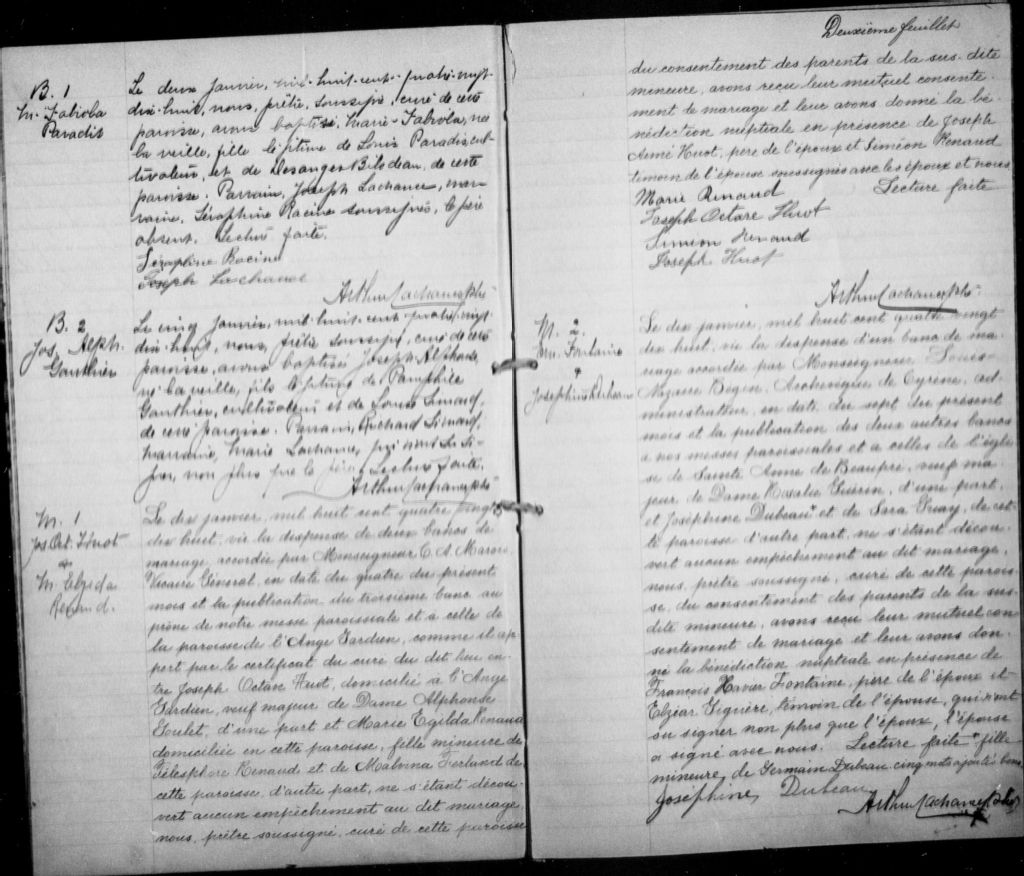 B. 1
M. Fabiola
Paradis
Le deux janvier, mil-huit-cent-quatre-vingt-
dix-huit, nous, prêtre, soussigné, curé de cette
paroisse, avons baptisé, Marie-Fabiola, née
la veille, fille légitime de Louis Paradis, cul-
tivateur, et de Desanges Bilodeau, de cette
paroisse. Parrain, Joseph Lachance, mar-
raine, Séraphine Racine soussignés, le père
absent. Lecture faite.
Séraphine Racine
Joseph Lachance
Arthur Lachance, ptre
B. 2
Jos. Alph.
Gauthier
Le cinq janvier, mil-huit-cent-quatre-vingt-
dix-huit, nous, prêtre soussigné, curé de cette
paroisse, avons baptisé Joseph Alphonse,
né la veille, fils légitime de Pamphile
Gauthier, cultivateur et de Louise Simard,
de cette paroisse. Parrain, Richard Simard,
marraine, Marie Lachance, qui n'ont su si-
gner, non plus que le père. Lecture faite.
Arthur Lachance, ptre
M. 1
Jos. Oct. Huot
&
M. Egilda
Renaud.
Le dix janvier, mil huit cent quatre vingt
dix huit, vu la dispense de deux bancs de
mariage accordée par Monseigneur C. A. Marois,
Vicaire Général, en date du quatre du présent
mois et la publication du troisième banc au
prône de notre messe paroissiale et à celle de
la paroisse de l'Ange Gardien, comme il ap-
pert par le certificat du curé du dit lieu en-
tre Joseph Octave Huot, domicilié à l'Ange
Gardien, veuf majeur de Dame Alphonse
Goulet, d'une part et Marie Egilda Renaud
domiciliée en cette paroisse, fille mineure de
Télesphore Renaud et de Malvina Ferland de
cette paroisse d'autre part, ne s'étant décou-
vert aucun empêchement au dit mariage,
nous, prêtre soussigné, curé de cette paroisse
Deuxième feuillet
du consentement des parents de la sus-dite
mineure, avons reçu leur mutuel consente-
ment de mariage et leur avons donné la bé-
nédiction nuptiale en présence de Joseph
Aimé Huot, père de l'époux et Siméon Renaud
témoin de l'épouse soussignés avec les époux et nous.
Marie Renaud Lecture faite
Joseph Octave Huot
Simeon Renaud
Joseph Huot
Arthur Lachance, ptre
M. 2.
Fontaine
&
Joséphine
Le dix janvier, mil huit cent quatre vingt
dix huit, vu la dispense d'un banc de ma-
riage accordée par Monseigneur, Louis-
Nazaire Bégin, Archevêque de Cyrène, ad-
ministrateur, en date du sept du présent
mois et la publication des deux autres bancs
à nos messes paroissiales et à celles de l'église
de Sainte Anne de Beaupré, veuf ma-
jeur de Dame Rosalie Guérin, d'une part,
et Joséphine Dubeau et de Sara Guay, de cet-
te paroisse d'autre part, ne s'étant décou-
vert aucun empêchement au dit mariage,
nous, prêtre soussigné, curé de cette parois-
se, du consentement des parents de la sus-
dite mineure, avons reçu leur mutuel con-
sentement de mariage et leur avons don-
né la bénédiction nuptiale en présence de
François Xavier Fontaine, père de l'époux et
Elzéar Giguère, témoin de l'épouse, qui n'ont
su signer non plus que l'époux, l'épouse
a signé avec nous. Lecture faite + fille
mineure, de Germain Dubeau, cinq mots ajoutés bons
Joséphine Dubeau
Arthur Lachance, ptre